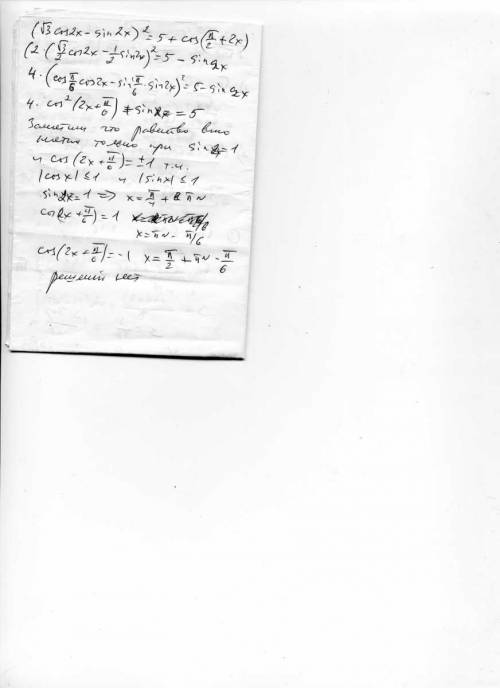 (√3 cos2x - sin2x)² = 5 + cos(π/2 + 2x)
(2·(√3/2 cos2x - 1/2 sin2x))² = 5 - sin2x
4·(cos π/6 cos2x - sin π/6 · sin2x)² = 5 - sin2x
4·cos²(2x + π/6) + sin2x = 5
Заметим что равенство вып
няется только при sin2x = 1
и cos(2x + π/6) = ±1 т.к.
|cosx| ≤ 1 и |sinx| ≤ 1
sin2x = 1 => x = π/4 + πn
cos(2x + π/6) = 1
x = πn - π/6
cos(2x + π/6) = -1 x = π/2 + πn - π/6
решений нет